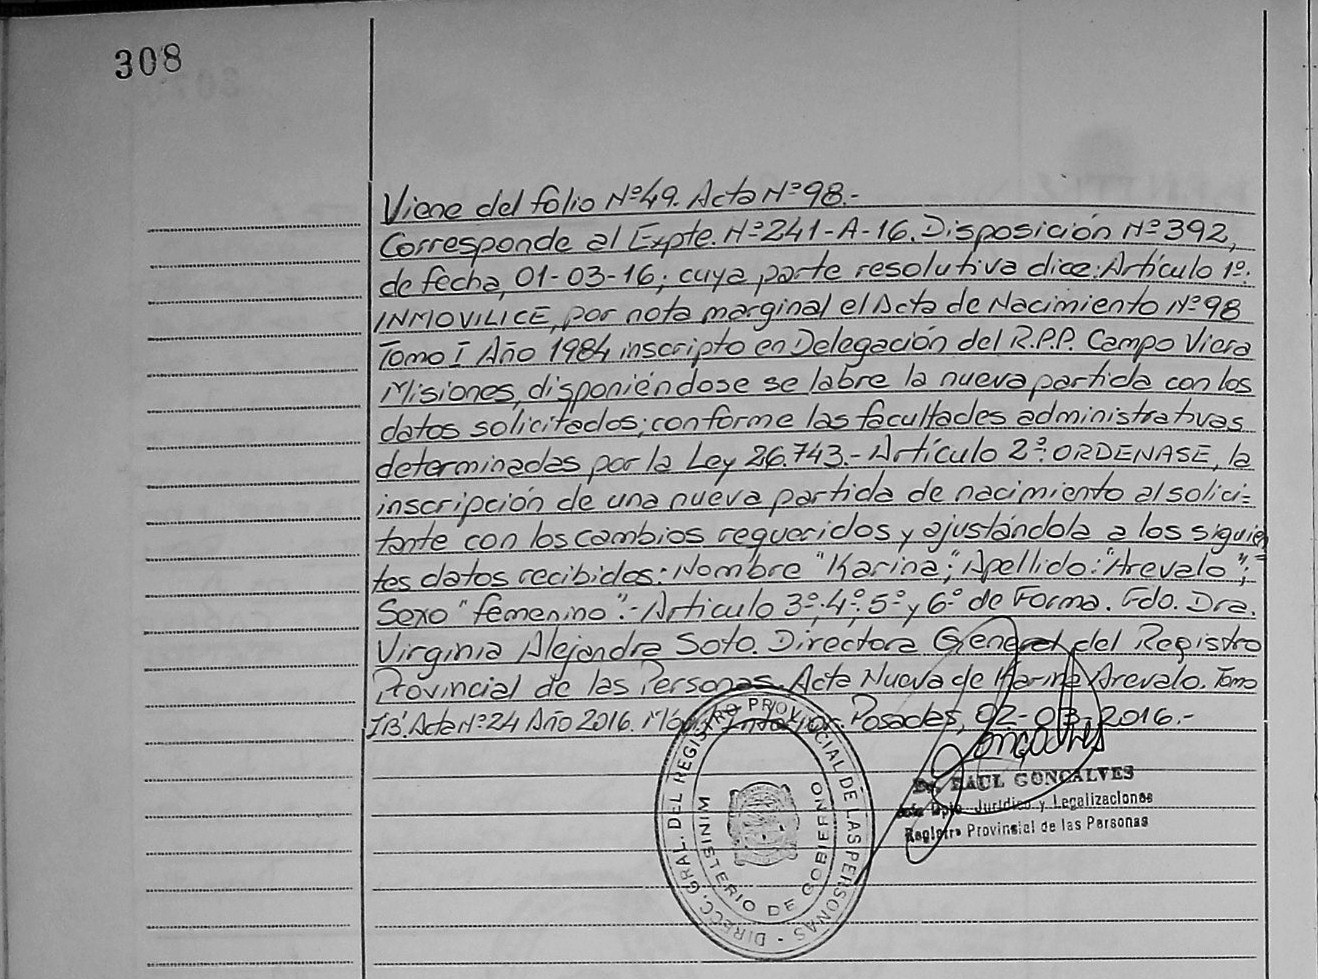 308
Viene del folio Nº49. Acta Nº98.-
Corresponde al Expte. Nº241-A-16. Disposición Nº392,
de fecha, 01-03-16; cuya parte resolutiva dice: Artículo 1º.
INMOVILICE, por nota marginal el Acta de Nacimiento Nº98
Tomo I Año 1984 inscripto en Delegación del R.P.P. Campo Viera
Misiones, disponiéndose se labre la nueva partida con los
datos solicitados; conforme las facultades administrativas
determinadas por la Ley 26.743.- Artículo 2º: ORDENASE, la
inscripción de una nueva partida de nacimiento al solici=
tante con los cambios requeridos y ajustándola a los siguien
tes datos recibidos: Nombre "Karina"; Apellido: "Arevalo";
Sexo "femenino".- Artículo 3º, 4º, 5º y 6º de Forma. Fdo. Dra.
Virginia Alejandra Soto. Directora General del Registro
Provincial de las Personas. Acta Nueva de Karina Arevalo. Tomo
Acta Nº24 Año 2016. Posadas, 02-03-2016.-
Goncalves
Dr. RAUL GONCALVES
Jefe Dpto. Jurídico y Legalizaciones
Registro Provincial de las Personas
DIRECC. GRAL. DEL REGISTRO PROVINCIAL DE LAS PERSONAS
MINISTERIO DE GOBIERNO